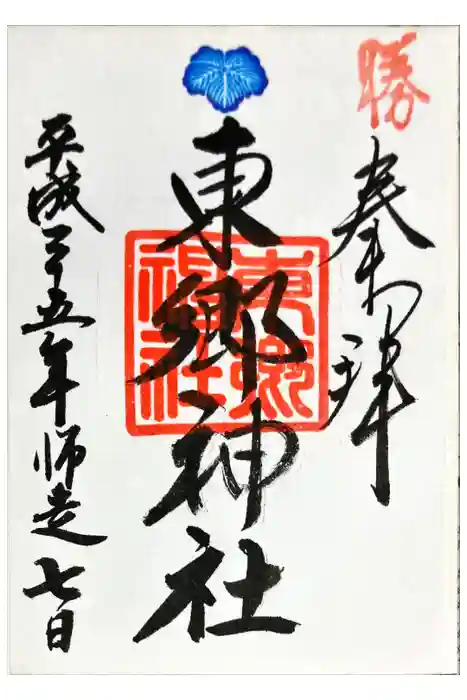 勝
奉拝
東郷神社
東郷神社
平成二十五年師走七日